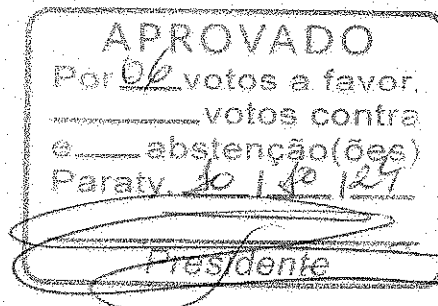 APROVADO
Por 06 votos a favor.
votos contra
e abstenção(ões)
Paraty, / /
Presidente